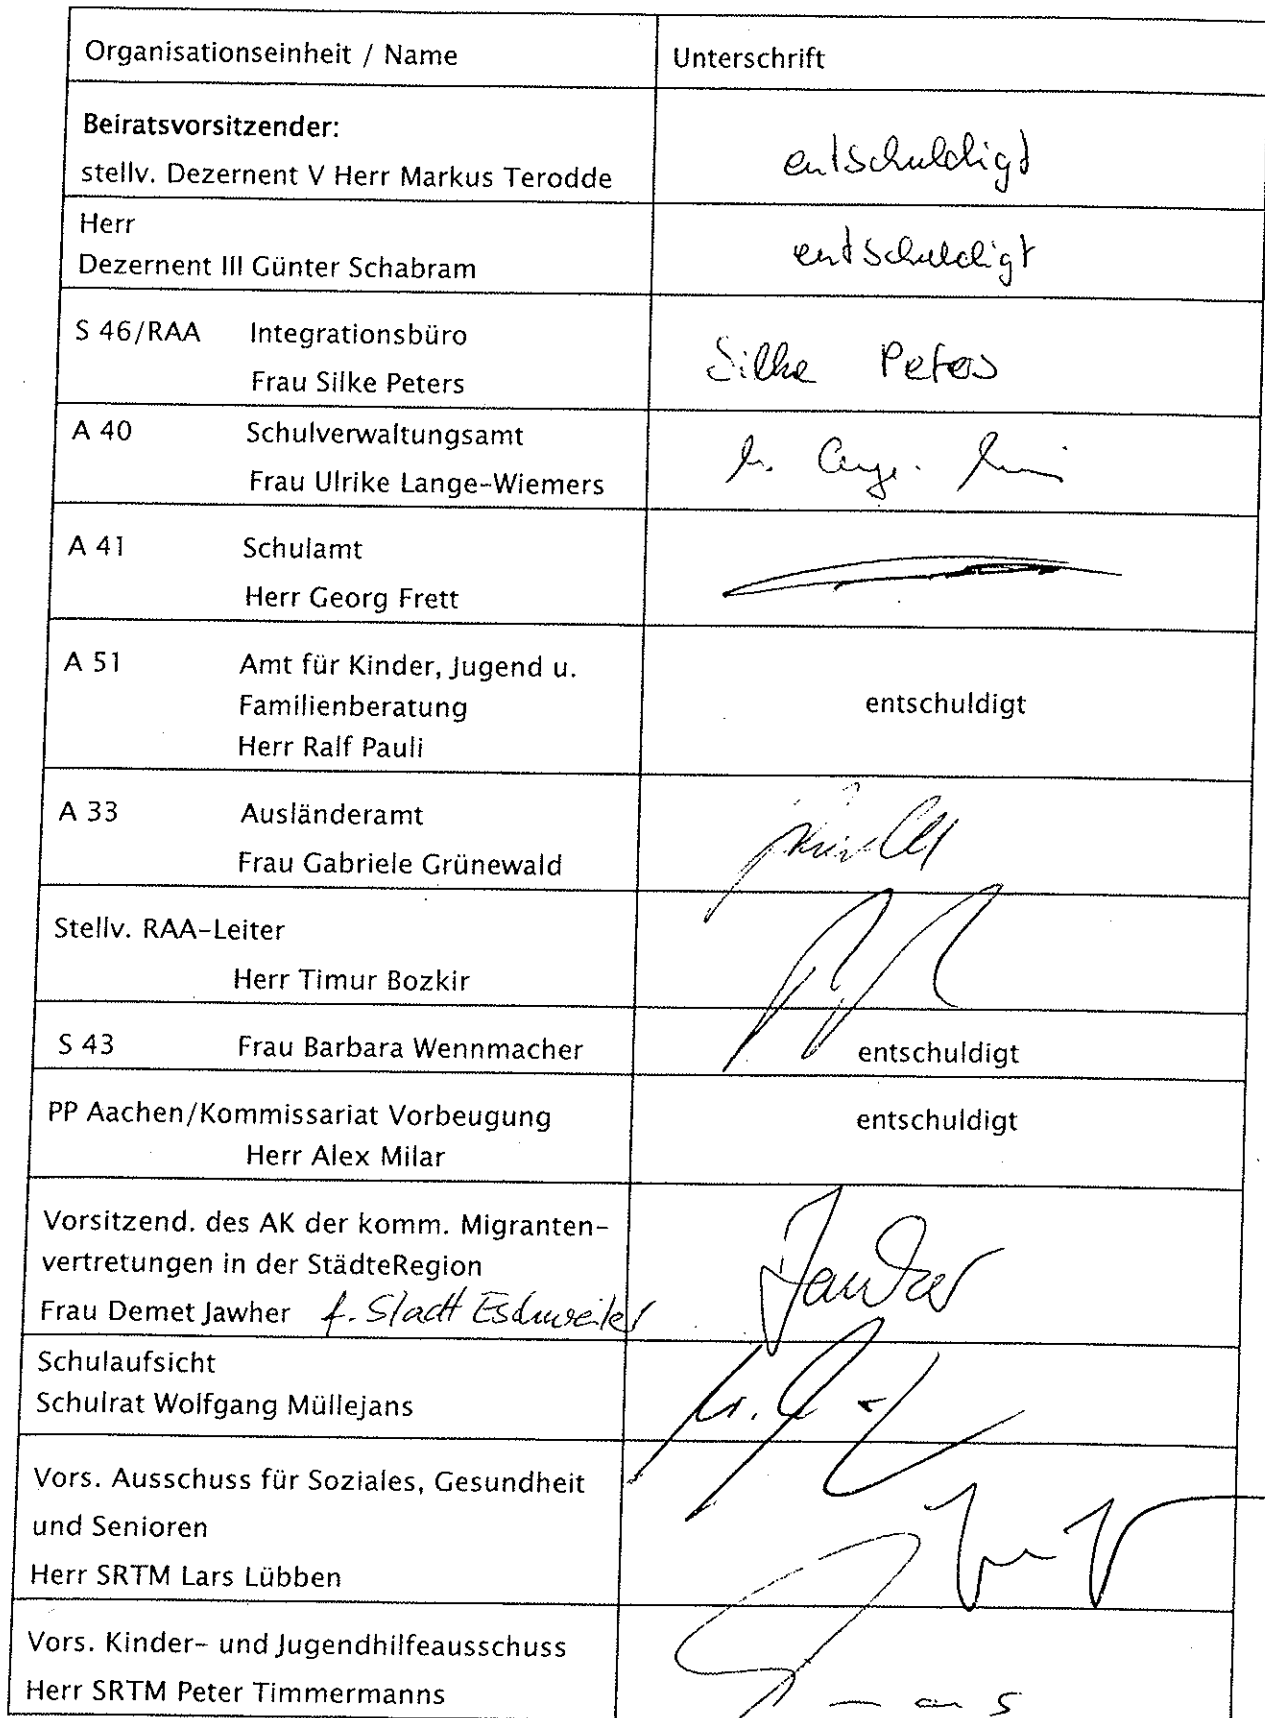 Organisationseinheit / Name Unterschrift
Beiratsvorsitzender:
stellv. Dezernent V Herr Markus Terodde entschuldigt
Herr
Dezernent III Günter Schabram entschuldigt
S 46/RAA Integrationsbüro
Frau Silke Peters Silke Peters
A 40 Schulverwaltungsamt
Frau Ulrike Lange-Wiemers
A 41 Schulamt
Herr Georg Frett
A 51 Amt für Kinder, Jugend u.
Familienberatung entschuldigt
Herr Ralf Pauli
A 33 Ausländeramt
Frau Gabriele Grünewald
Stellv. RAA-Leiter
Herr Timur Bozkir
S 43 Frau Barbara Wennmacher entschuldigt
PP Aachen/Kommissariat Vorbeugung entschuldigt
Herr Alex Milar
Vorsitzend. des AK der komm. Migranten-
vertretungen in der StädteRegion
Frau Demet Jawher f. Stadt Eschweiler Jawher
Schulaufsicht
Schulrat Wolfgang Müllejans
Vors. Ausschuss für Soziales, Gesundheit
und Senioren
Herr SRTM Lars Lübben
Vors. Kinder- und Jugendhilfeausschuss
Herr SRTM Peter Timmermanns